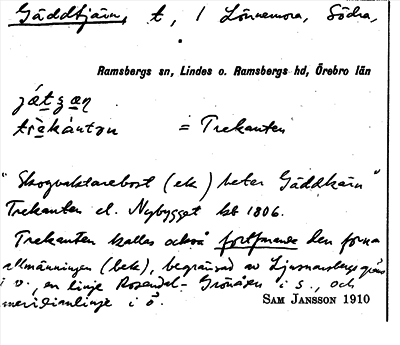 Gäddtjärn, t, l Lönnemora, Södra,
Ramsbergs sn, Lindes o. Ramsbergs hd, Örebro län
= Trekanten
"Skogvaktarebost (ek) heter Gäddkärn"
Trekanten el. Nybygget kb 1806.
Trekanten kallas också fortfarande den forna
allmänningen (bek), begränsad av Ljusnarsbergs gräns
i v., en linje Rosendal - Grönåsen i s., och
meridianlinje i ö.
SAM JANSSON 1910